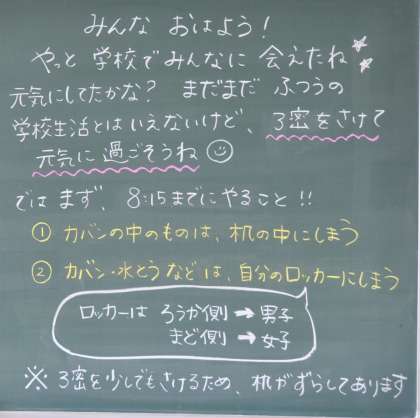 みんな おはよう!
やっと 学校で みんなに 会えたね
元気にしてたかな? まだまだ ふつうの
学校生活とはいえないけど、3密をさけて
元気に 過ごそうね
ではまず、8:15までにやること!!
① カバンの中のものは、机の中にしまう
② カバン・水とうなどは、自分のロッカーにしまう
ロッカーは ろうか側→男子
まど側→女子
※ 3密を少しでもさけるため、机がずらしてあります